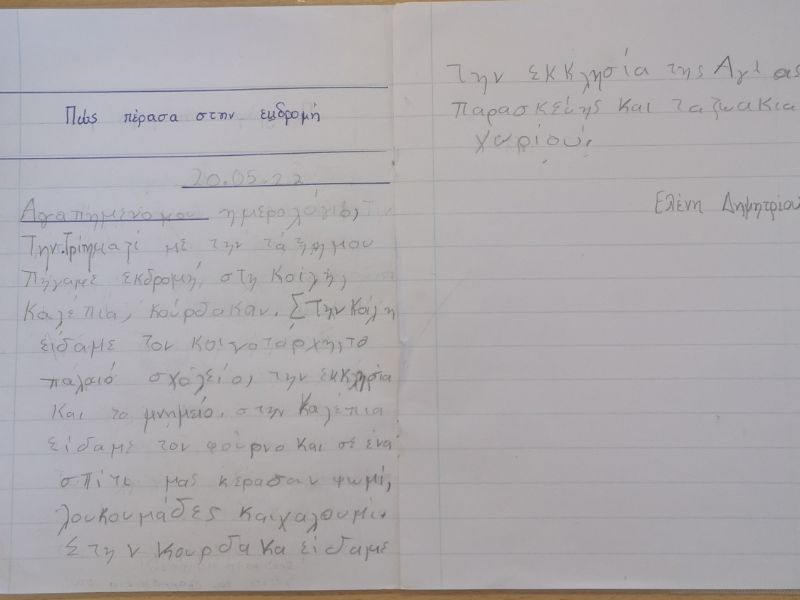 Πώς πέρασα στην εκδρομή
20.05.22
Αγαπημένο μου ημερολόγιο,
Την Τρίτη μαζί με την τάξη μου
πήγαμε εκδρομή, στη Κοίλη,
Καλέπια, Κούρδακαν. Στην Κοίλη
είδαμε τον κοινοτάρχη, το
παλαιό σχολείο, την εκκλησία
και το μνημείο. στην Καλέπια
είδαμε τον φούρνο και σε ένα
σπίτι μας κέρασαν ψωμί,
λουκουμάδες και χαλουμι.
Στην Κουρδακα είδαμε
την εκκλησία της Αγίας
παρασκεύης και τα ζωακια
χωριού.
Ελένη Δημητρίου